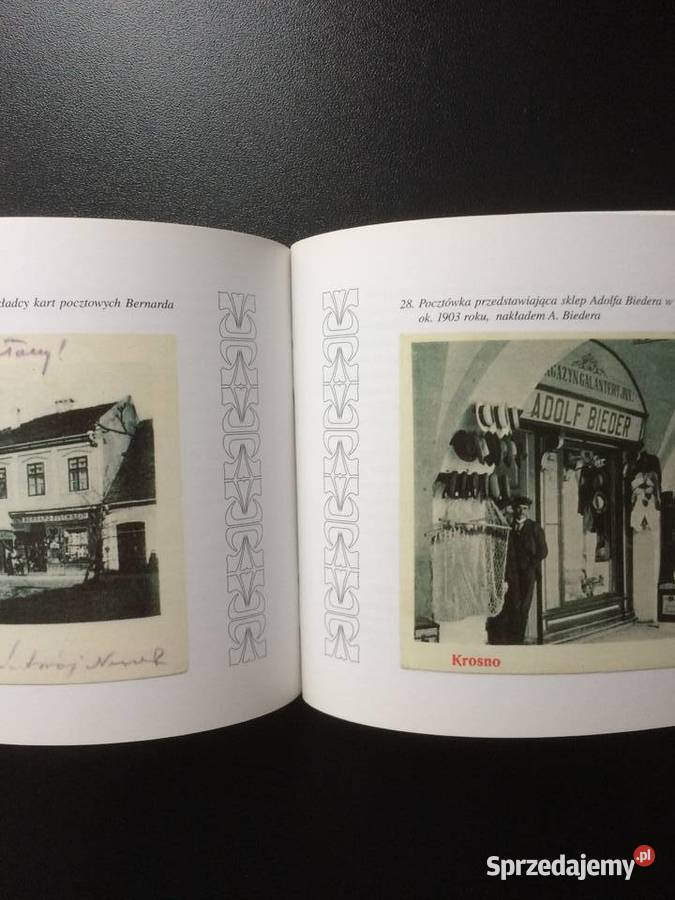 kładcy kart pocztowych Bernarda
28. Pocztówka przedstawiająca sklep Adolfa Biedera w
ok. 1903 roku, nakładem A. Biedera
MAGAZYN GALANTERYJNY
ADOLF BIEDER
Krosno
Sprzedajemy.pl